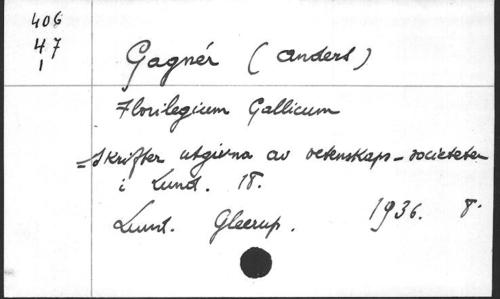 406
47
1
Gagnér (Anders)
Florilegium Gallicum
= Skrifter utgivna av vetenskaps-societeten
i Lund. 18.
Lund. Gleerup. 1936. 8.